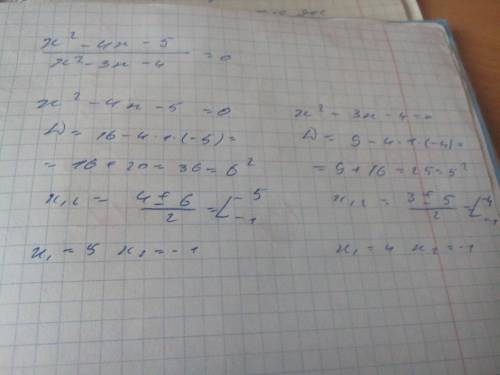 x² - 4x - 5
x² - 3x - 4 = 0
x² - 4x - 5 = 0
D = 16 - 4·1·(-5) =
= 16 + 20 = 36 = 6²
x₁,₂ = 4 ± 6 / 2 = [ 5
-1
x₁ = 5 x₂ = -1
x² - 3x - 4 = 0
D = 9 - 4·1·(-4) =
= 9 + 16 = 25 = 5²
x₁,₂ = 3 ± 5 / 2 = [ 4
-1
x₁ = 4 x₂ = -1